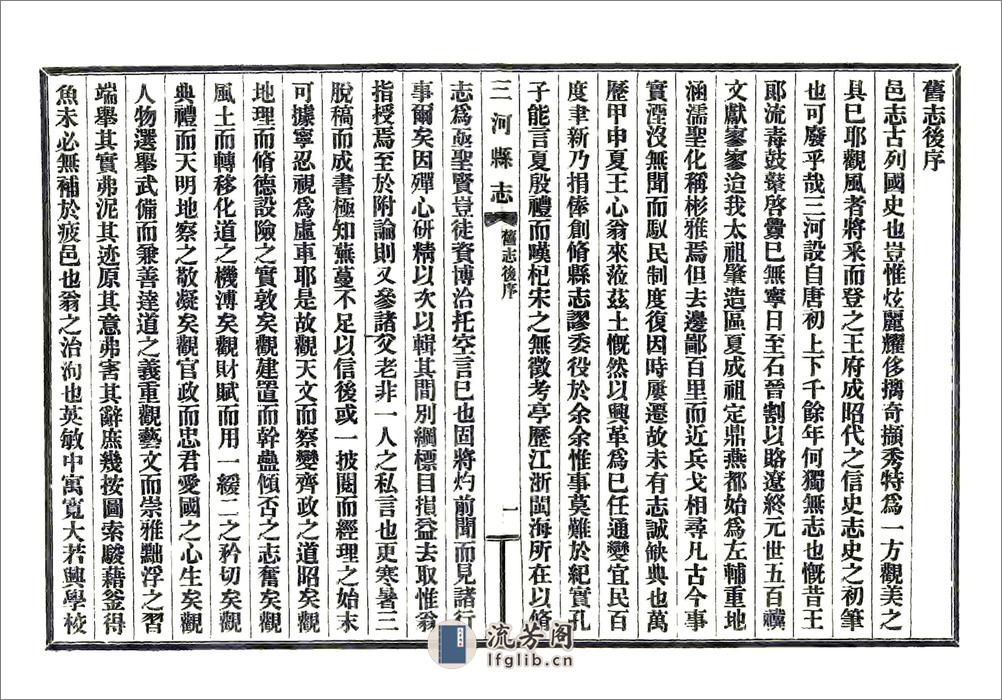 舊志後序
邑志古列國史也豈惟炫麗耀侈摛奇擷秀特爲一方觀美之
具已耶觀風者將采而登之王府成昭代之信史志史之初筆
也可廢乎哉三河設自唐初上下千餘年何獨無志也慨昔王
郞流毒鼓鼙啓釁已無寧日至石晉割以賂遼終元世五百禩
文獻寥寥迨我太祖肇造區夏成祖定鼎燕都始爲左輔重地
涵濡聖化稱彬雅焉但去邊鄙百里而近兵戈相尋凡古今事
實湮沒無聞而馭民制度復因時屢遷故未有志誠缺典也萬
歷甲申夏王心翁來蒞茲土慨然以興革爲已任通變宜民百
度聿新乃捐俸創脩縣志謬委役於余余惟事莫難於紀實孔
子能言夏殷禮而嘆杞宋之無徵考亭歷江浙閩海所在以脩
三河縣志
舊志後序
一
志爲亟聖賢豈徒資博洽托空言已也固將灼前聞而見諸行
事爾矣因殫心研精以次以輯其間別綱標目損益去取惟翁
指授焉至於附論則又參諸父老非一人之私言也更寒暑三
脫稿而成書極知蕪蔓不足以信後或一披閱而經理之始末
可據寧忍視爲虛車耶是故觀天文而察變齊政之道昭矣觀
地理而脩德設險之實敦矣觀建置而幹蠱傾否之志奮矣觀
風土而轉移化道之機溥矣觀財賦而用一緩二之矜切矣觀
典禮而天明地察之敬凝矣觀官政而忠君愛國之心生矣觀
人物選舉武備而兼善達道之義重觀藝文而崇雅黜浮之習
端舉其實弗泥其迹原其意弗害其辭庶幾按圖索駿藉筌得
魚未必無補於疲邑也翁之治泃也英敏中寓寬大若興學校
流芳阁
lfglib.cn